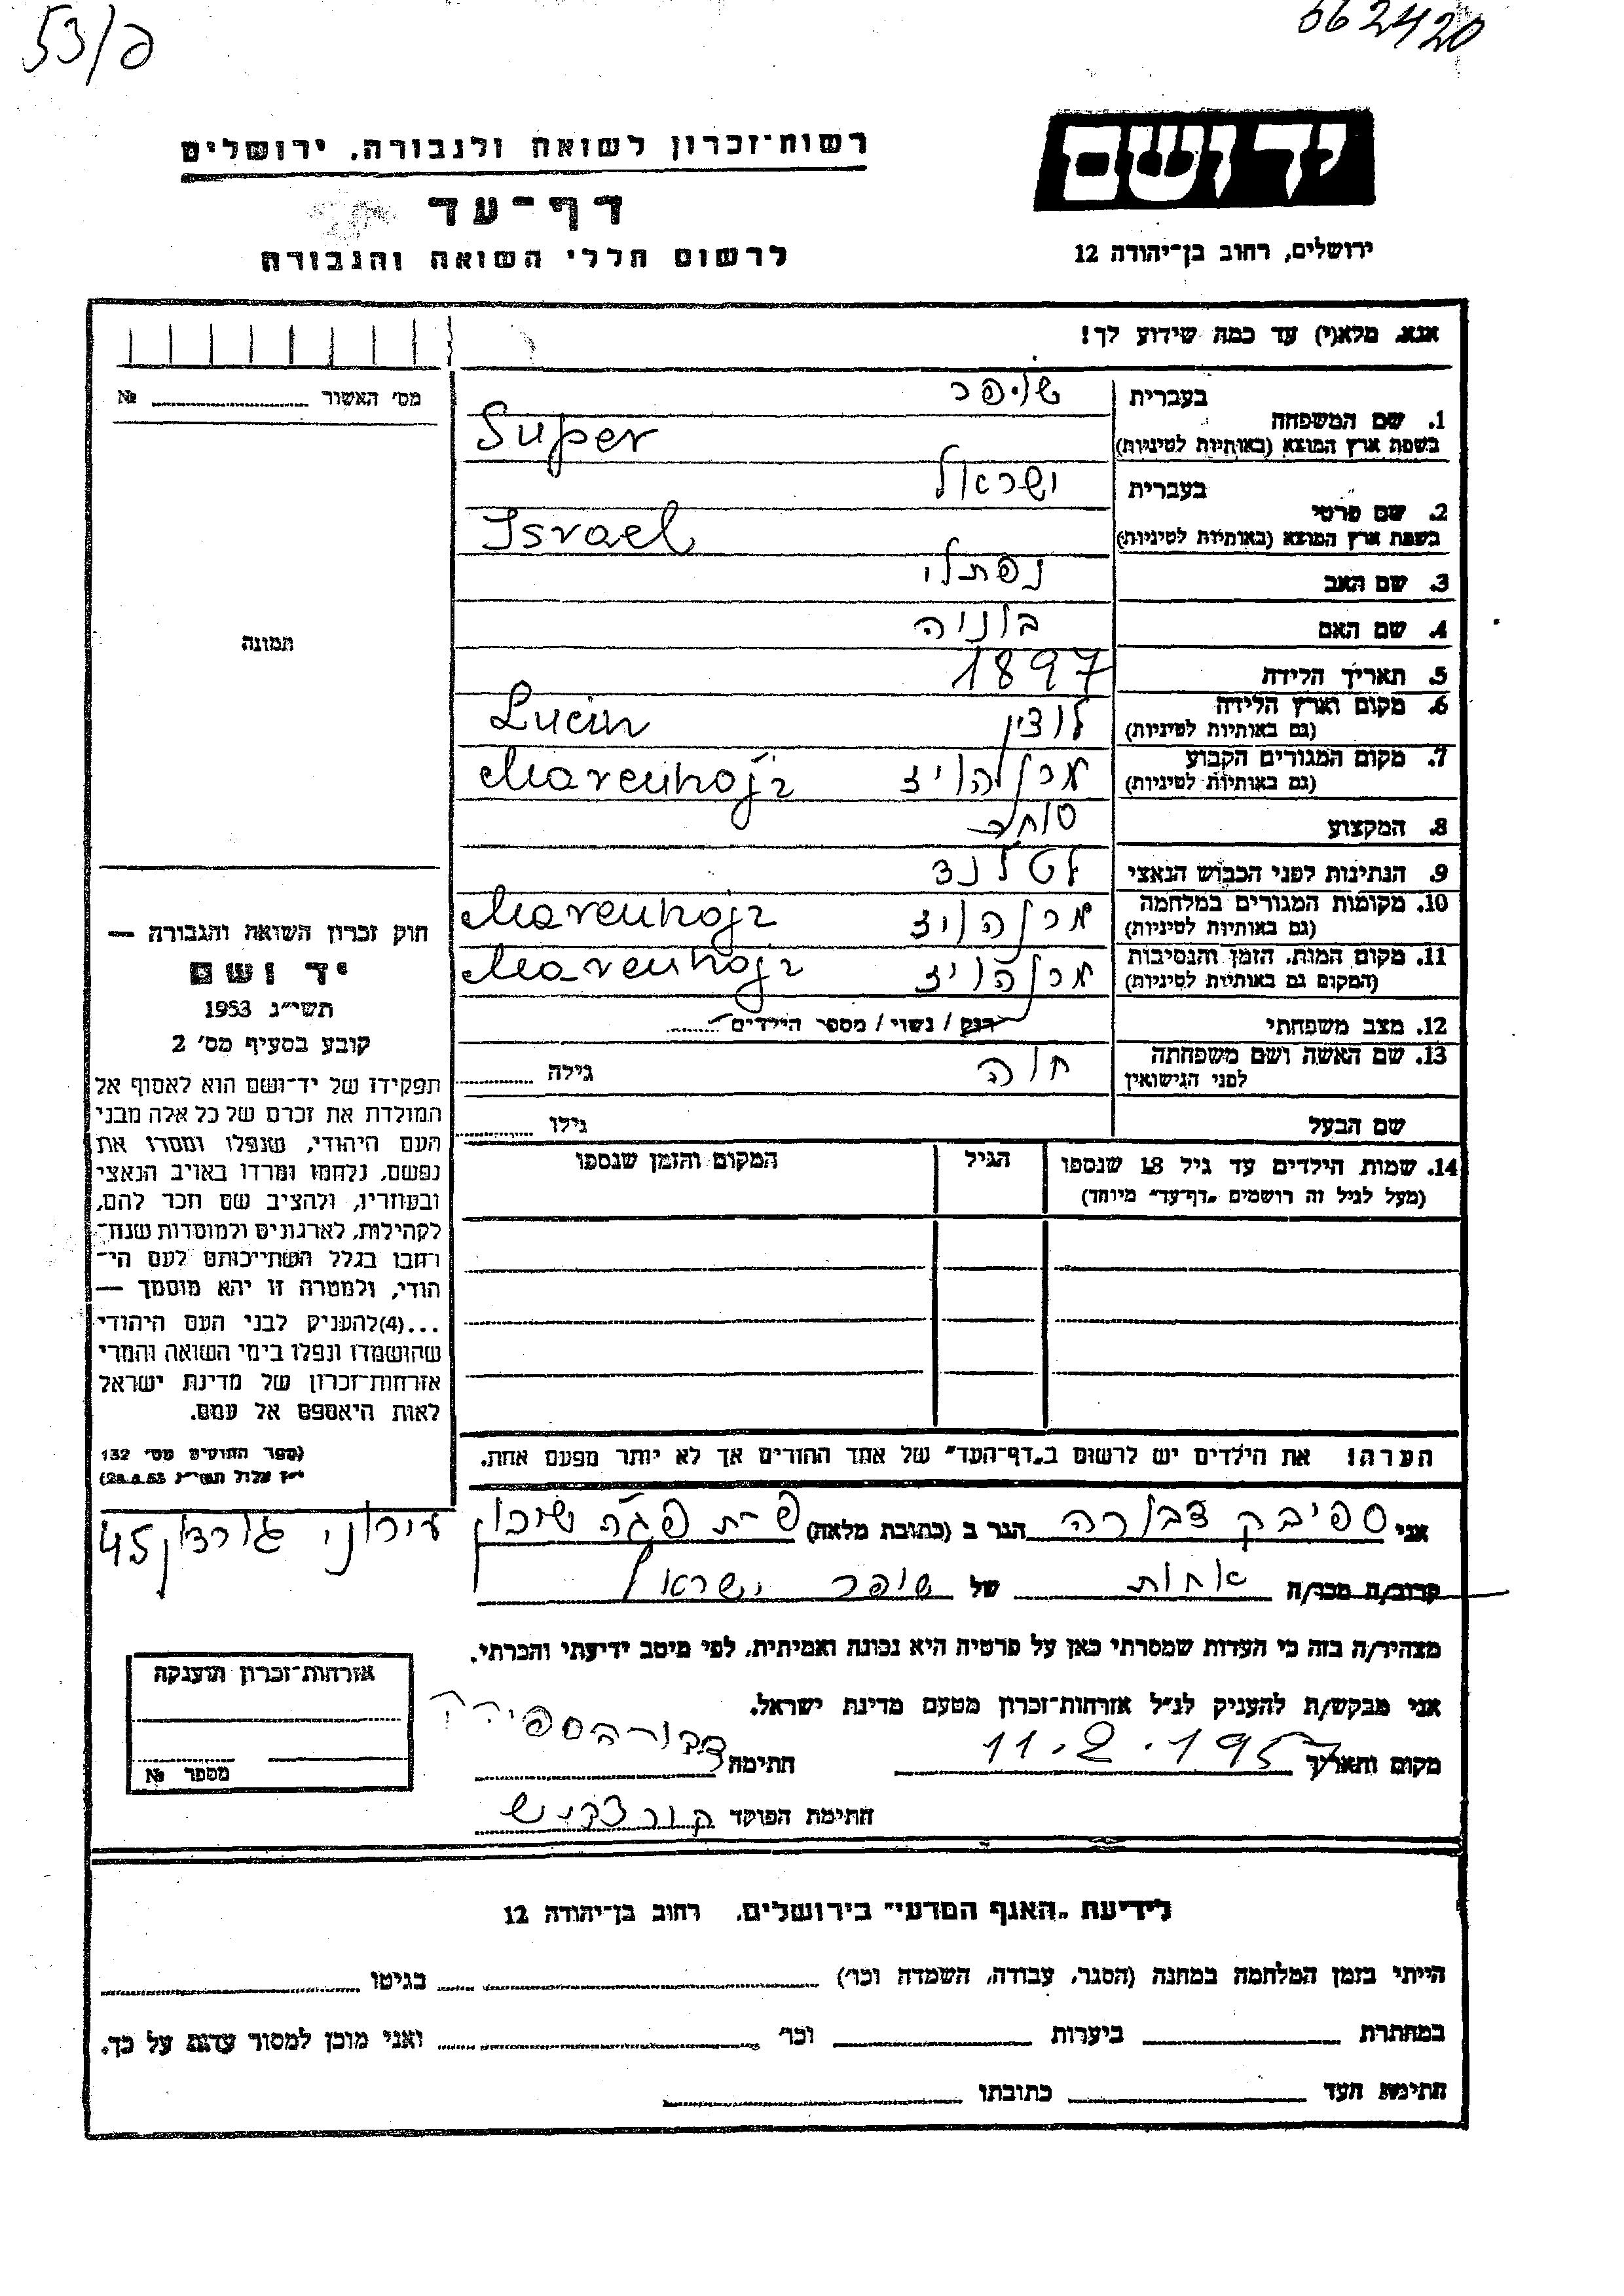 53/ם
662420
יד ושם
ירושלים, רחוב בן־יהודה 12
רשות־זכרון לשואה ולגבורה, ירושלים
דף־עד
לרשום חללי השואה והגבורה
אנא, מלא(י) עד כמה שידוע לך!
מס׳ האשור №
1. שם המשפחה
בעברית שופר
בשפת ארץ המוצא (באותיות לטיניות) Super
2. שם פרטי
בעברית ישראל
בשפת ארץ המוצא (באותיות לטיניות) Israel
3. שם האב נפתלי
4. שם האם בוניה
5. תאריך הלידה 1897
6. מקום וארץ הלידה לוצין Lucin
(גם באותיות לטיניות)
7. מקום המגורים הקבוע
(גם באותיות לטיניות) מרנהויז Marenhojz
8. המקצוע סוחר
9. הנתינות לפני הכבוש הנאצי לטלנד
10. מקומות המגורים במלחמה
(גם באותיות לטיניות) מרנהויז Marenhojz
11. מקום המות, הזמן והנסיבות
(המקום גם באותיות לטיניות) מרנהויז Marenhojz
12. מצב משפחתי רוק / נשוי / מספר הילדים
13. שם האשה ושם משפחתה
לפני הנישואין חוה גילה
שם הבעל גילו
14. שמות הילדים עד גיל 18 שנספו
(מעל לגיל זה רושמים „דף־עד” מיוחד)
הגיל
המקום והזמן שנספו
תמונה
חוק זכרון השואה והגבורה —
יד ושם
תשי״ג 1953
קובע בסעיף מס׳ 2
תפקידו של יד־ושם הוא לאסוף אל
המולדת את זכרם של כל אלה מבני
העם היהודי, שנפלו ומסרו את
נפשם, נלחמו ומרדו באויב הנאצי
ובעוזריו, ולהציב שם וזכר להם,
לקהילות, לארגונים ולמוסדות שנח־
רבו בגלל השתייכותם לעם הי־
הודי, ולמטרה זו יהא מוסמך —
...(4)להעניק לבני העם היהודי
שהושמדו ונפלו בימי השואה והמרי
אזרחות־זכרון של מדינת ישראל
לאות היאספם אל עמם.
(ספר החוקים מס׳ 132
י״ז אלול תשי״ג 28.8.53)
הערה! את הילדים יש לרשום ב„דף־העד” של אחד ההורים אך לא יותר מפעם אחת.
אני ספיבק דבורה הגר ב (כתובת מלאה) פ״ת פג״ה שיכון
עירוני גורדון 45
קרוב/ה מכר/ה אחות של שופר ישראל
מצהיר/ה בזה כי העדות שמסרתי כאן על פרטיה היא נכונה ואמיתית, לפי מיטב ידיעתי והכרתי.
אני מבקש/ת להעניק לנ״ל אזרחות־זכרון מטעם מדינת ישראל.
מקום ותאריך 11.2.1957 חתימה
חתימת הפוקד
אזרחות־זכרון הוענקה
מספר №
לידיעת „האגף המדעי” בירושלים, רחוב בן־יהודה 12
הייתי בזמן המלחמה במחנה (הסגר, עבודה, השמדה וכו׳) בגיטו
במחתרת ביערות וכו׳ ואני מוכן למסור עדות על כך.
חתימת העד כתובתו